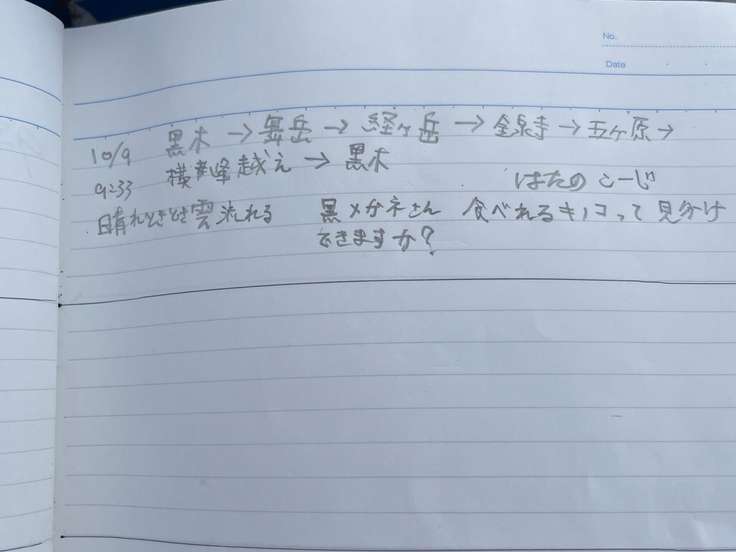 No.
Date
10/9 黒木→舞岳→経ヶ岳→金泉寺→五ヶ原→
9:33 横峰越え→黒木
はたの こーじ
晴れときどき雲流れる 黒メガネさん 食べれるキノコって見分け
できますか?